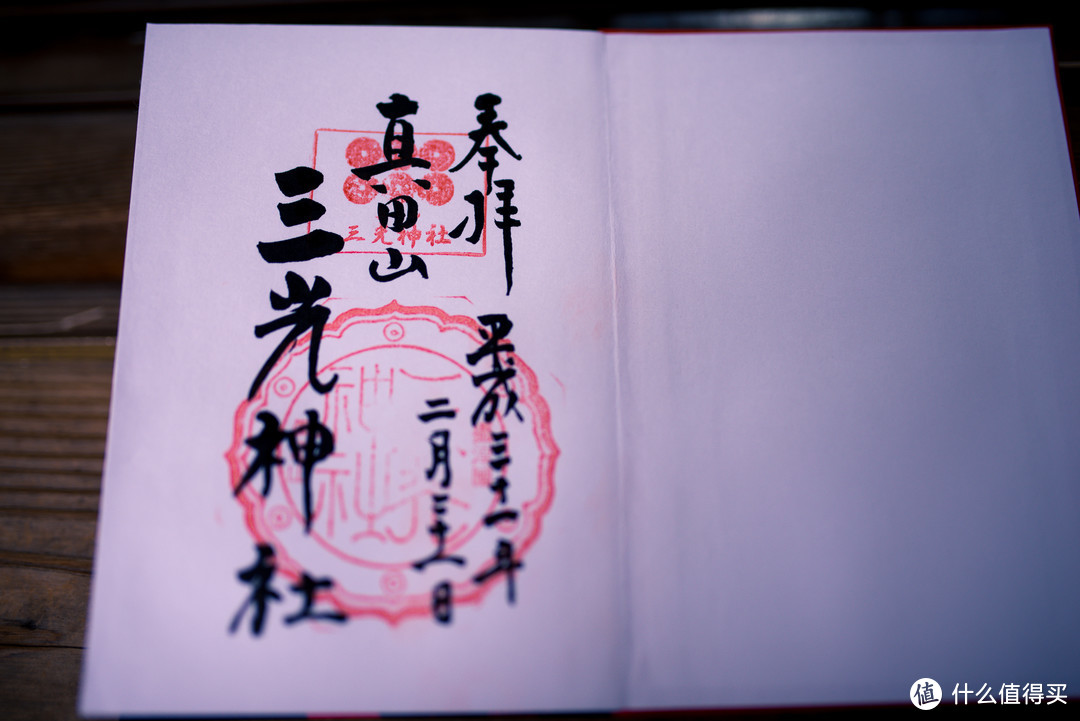 奉拝 平成三十一年
二月二十一日
真田山
三光神社
三光神社
值 什么值得买